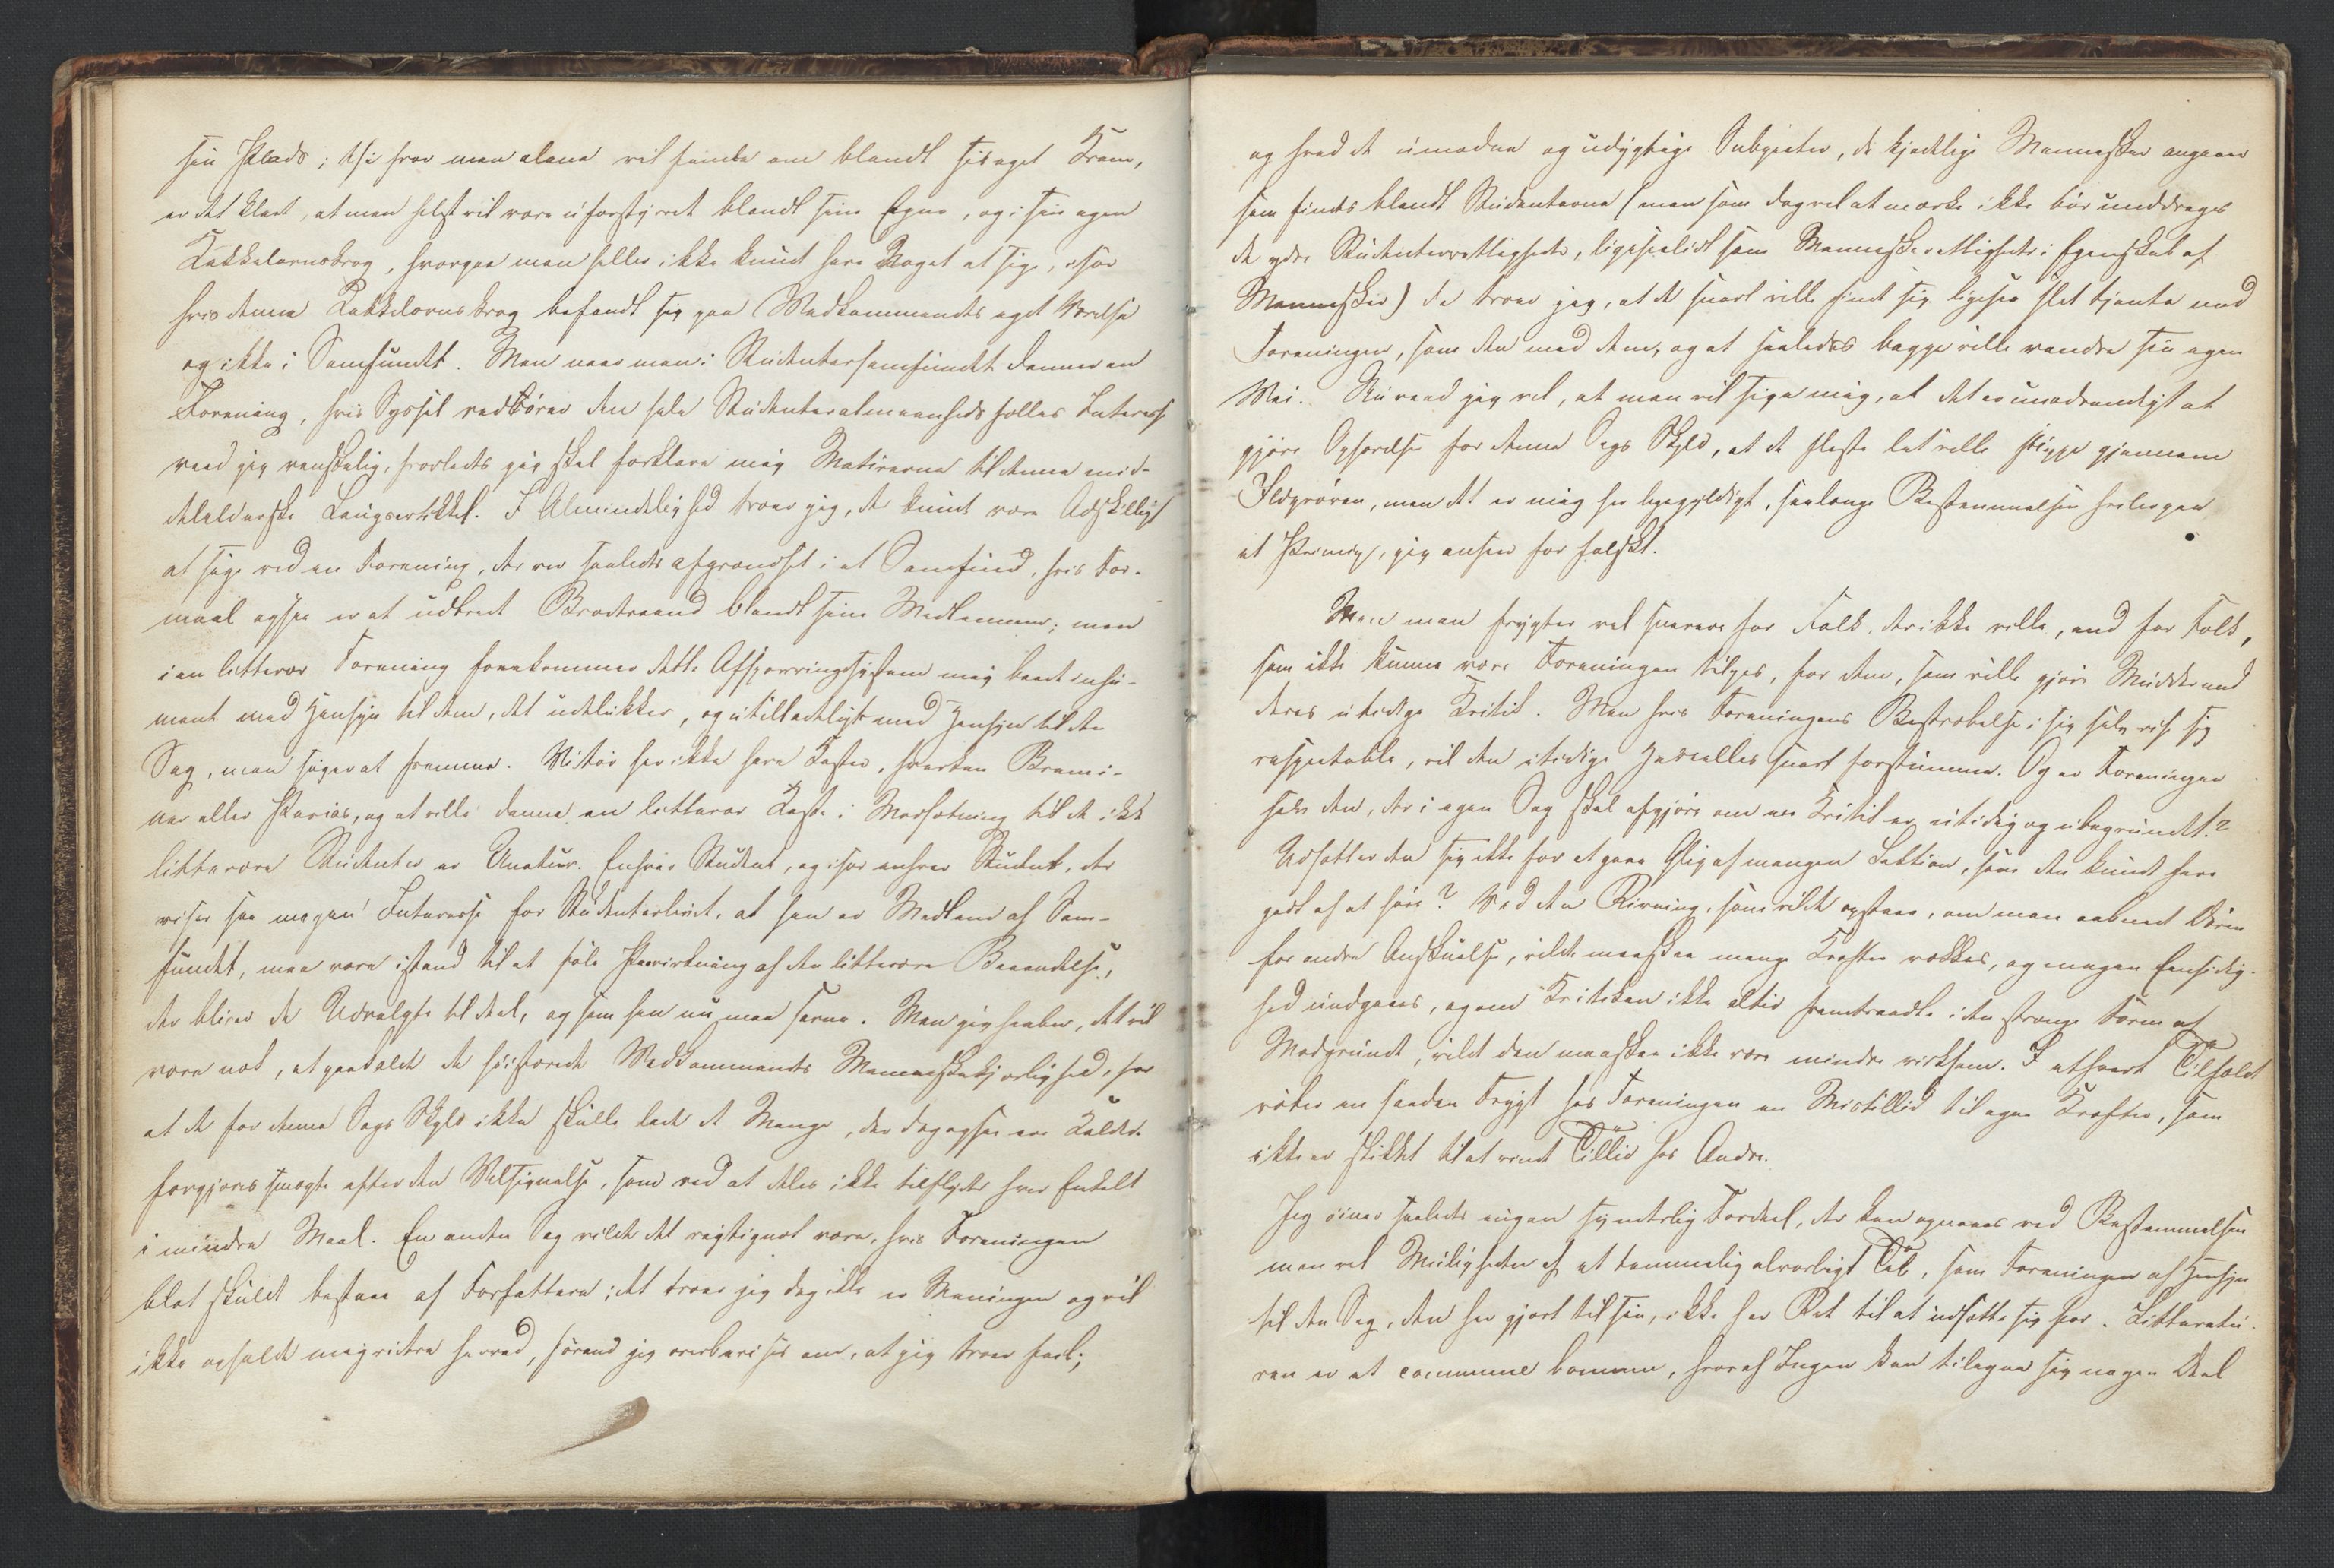 sin Plads; thi hvor man alene vil sumle om blandt sit eget Kram,
er det klart, at man helst vil være uforstyrret blandt sine Egne, og i sin egen
Kakkelovnskrog, hvorpaa man heller ikke kunde have Noget at sige, især
hvis denne Kakkelovnskrog befandt sig paa Vedkommendes eget Værelse
og ikke i Samfundet. Men naar man i Studentersamfundet danner en
Forening, hvis Syssel vedkører den hele Studenteralmeenheds fælles Interesse
veed jeg vanskelig, hvorledes jeg skal forklare mig Motiverne til denne mid-
delalderske Laugsartikkel. I Almindelighed troer jeg, der kunde være Adskilligt
at sige ved en Forening, der var saaledes afgrændset i et Samfund, hvis For-
maal ogsaa er at udbrede Broderaand blandt sine Medlemmer; men
i en litterær Forening forekommer dette Afsperringssystem mig baade inhu-
mant med Hensyn til dem, det udelukker, og utilladeligt med Hensyn til den
Sag, man søger at fremme. Vi bør her ikke have Kaster, hverken Brami-
ner eller Parias, og at ville danne en litterær Kaste i Modsætning til de ikke
litterære Studenter er Unatur. Enhver Student, og især enhver Student, der
viser saa megen Interesse for Studenterlivet, at han er Medlem af Sam-
fundet, maa være istand til at føle Paavirkning af den litterære Baaendelse,
der bliver de Udvalgte til Deel, og som han nu maa savne. Men jeg haaber, det vil
være nok, at paakalde de høistærede Vedkommendes Menneskekjærlighed, for
at de for denne Sags Skyld ikke skulle lade de Mange, der dog ogsaa ere Kaldede
forgjæves smægte efter den Velsignelse, som ved at deles ikke tilflyder hver Enkelt
i mindre Maal. En anden Sag vilde det rigtignok være, hvis Foreningen
blot skulde bestaae af Forfattere; det troer jeg dog ikke er Meningen og vil
ikke opholde mig videre herved, førend jeg overbevises om, at jeg troer feil;
og hvad de umodne og udygtige Subjecter, de kjedelige Mennesker angaaer
som findes blandt Studenterne (men som dog vel at mærke ikke bør unddrages
de ydre Studenterrettigheder, ligesaalidt som Menneskerettigheder i Egenskab af
Mennesker) da troer jeg, at de snart ville finde sig ligesaa slet tjente med
Foreningen, som den med dem, og at saaledes begge ville vandre sin egen
Vei. Nu veed jeg vel, at man vil sige mig, at det er unødvendigt at
gjøre Ophævelse for denne Sags Skyld, at de fleste let ville slippe gjennem
Ildprøven, men det er mig her ligegyldigt, saalænge Bestemmelsen hviler paa
et Princip, jeg anseer for falskt.
Men man frygter vel snarere for Folk, der ikke ville, end for Folk,
som ikke kunne være Foreningen tilpas, for dem, som ville gjøre Mudder med
deres utidige Kritik. Men hvis Foreningens Bestræbelse i sig selv viser sig
respectable, vil den utidige Hvirvlen snart forstumme. Og er Foreningen
selv den, der i egen Sag skal afgjøre om en Kritik er utidig og ubegrundet?
Udsætter den sig ikke for at gaae Glip af mangen Lektion, som den kunde have
godt af at høre? Ved den Rivning, som vilde opstaae, om man aabnede Døren
for andre Anskuelser, vilde maaskee mange Kræfter vækkes, og megen Eensidig-
hed undgaaes, og om Kritiken ikke altid fremtraadte i den strenge Form af
Modgrunde, vilde den maaskee ikke være mindre virksom. I ethvert Tilfælde
røber en saadan Frygt hos Foreningen en Mistillid til egne Kræfter, som
ikke er skikket til at vinde Tillid hos Andre.
Jeg øiner saaledes ingen synderlig Fordeel, der kan opnaaes ved Bestemmelsen
men vel Muligheden af et temmelig alvorligt Tab, som Foreningen af Hensyn
til den Sag, den har gjort til sin, ikke har Ret til at udsætte sig for. Litteratu-
ren er et commune bonum, hvoraf Ingen kan tilegne sig nogen Deel